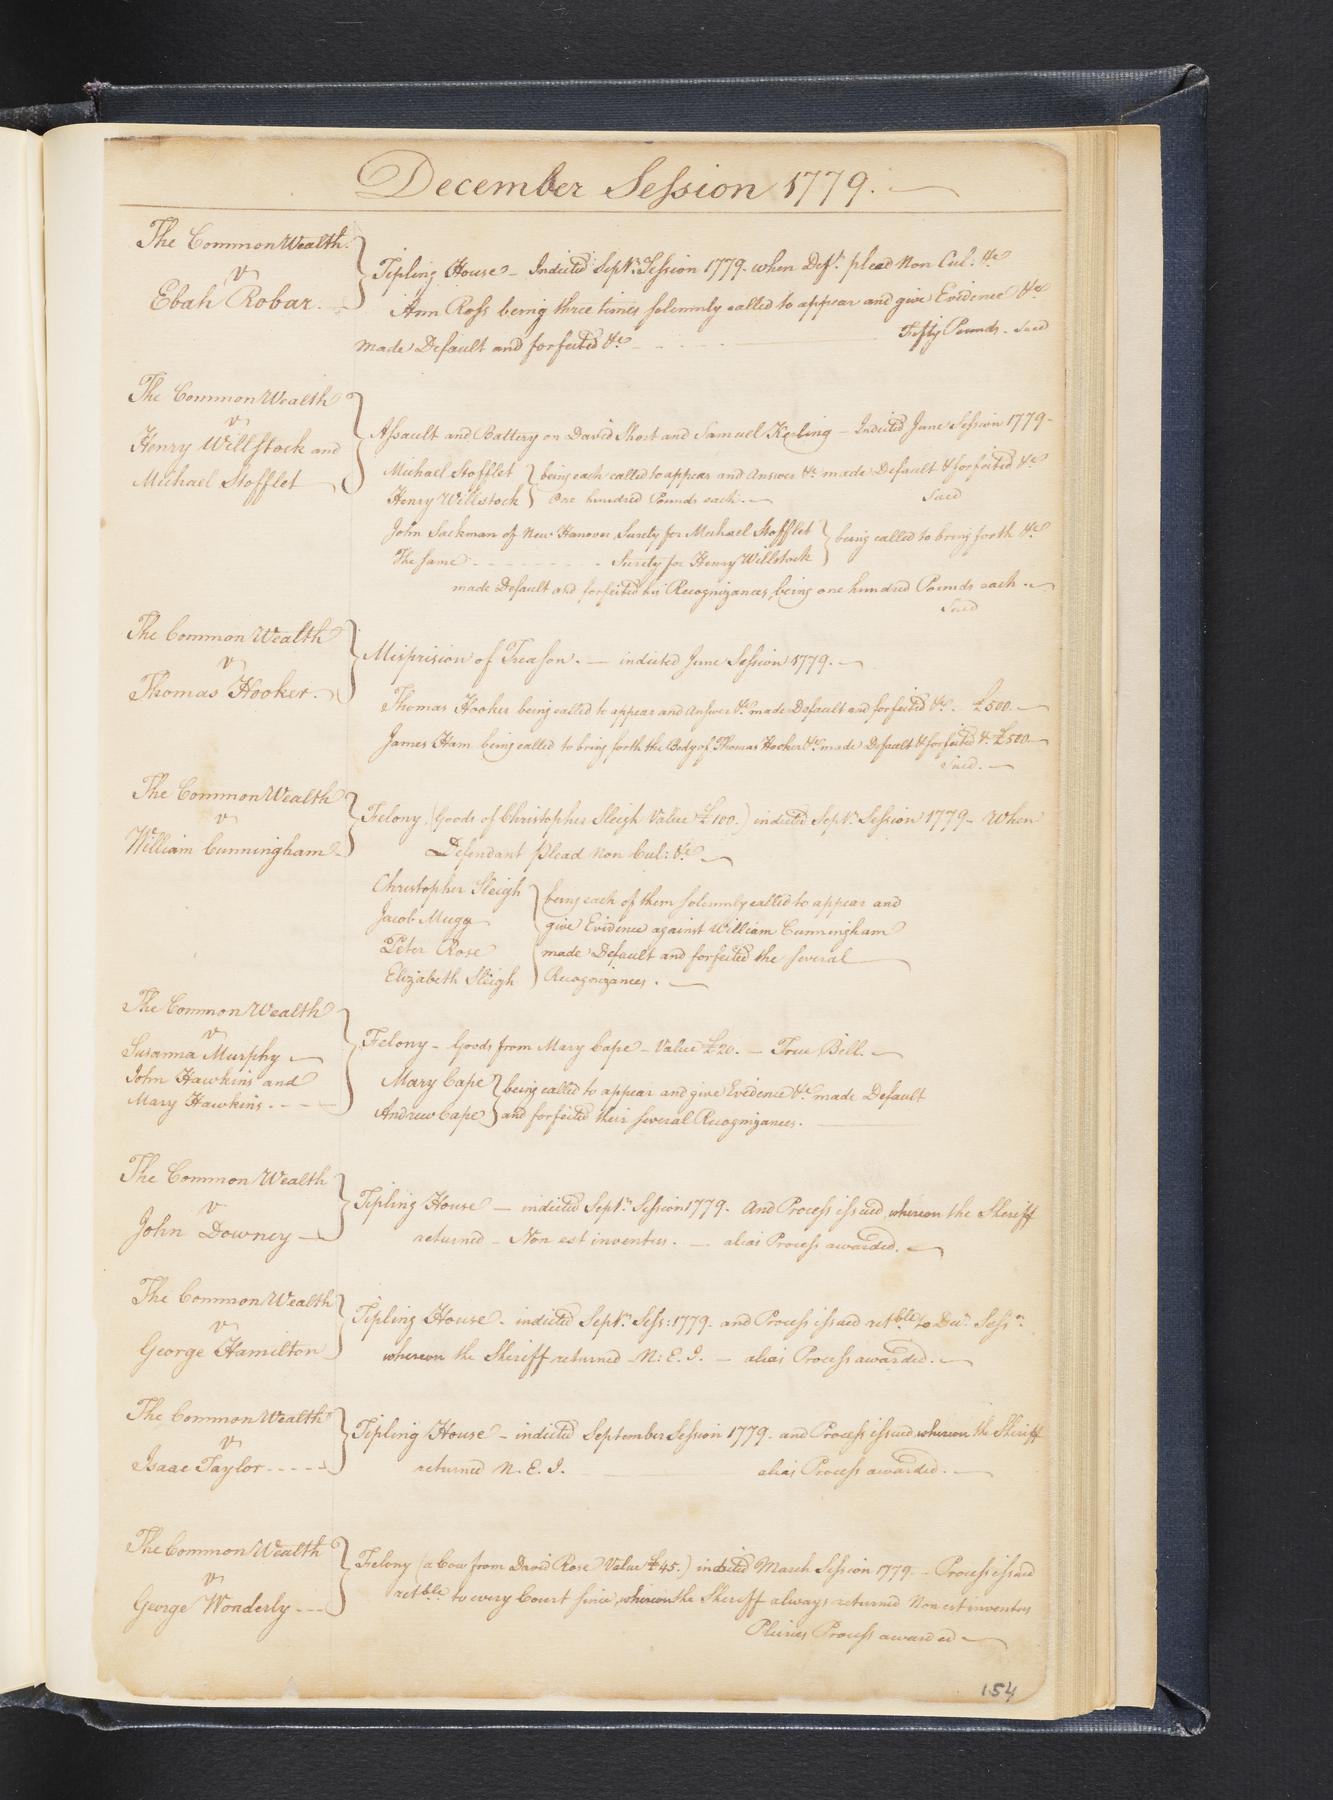 December Session 1779.
The Common Wealth
v
Ebah Robar.
Tipling House – Indicted Septr. Session 1779. when Deft. plead Non Cul. &c
Ann Ross being three times solemnly called to appear and give Evidence &c
made Default and forfeited &c
Fifty Pounds. Sued
The Common Wealth
v
Henry Willstock and
Michael Stofflet
Assault and Battery on David Short and Samuel Kerling – Indicted June Session 1779 –
Michael Stofflet
Henry Willstock
being each called to appear and Answer &c made Default & forfeited &c
One hundred Pounds each. –
Sued
John Sackman of New Hanover Surety for Michael Stofflet
The same - - - - - - - - Surety for Henry Willstock
being called to bring forth &c
made Default and forfeited his Recognizances, being one hundred Pounds each. –
Sued
The Common Wealth
v
Thomas Hooker.
Misprision of Treason. – indicted June Session 1779. –
Thomas Hooker being called to appear and Answer &c. made Default and forfeited &c. £500. –
James Ham being called to bring forth the Body of Thomas Hooker &c made Default & forfeited &c. £500 –
Sued. –
The Common Wealth
v
William Cunningham –
Felony. (Goods of Christopher Sleigh Value £100.) indicted Septr. Session 1779 – When
Defendant plead Non Cul: &c. –
Christopher Sleigh
Jacob Mugg
Peter Rose
Elizabeth Sleigh
being each of them solemnly called to appear and
give Evidence against William Cunningham
made Default and forfeited the several
Recognizances. –
The Common Wealth
v
Susanna Murphy –
John Hawkins and
Mary Hawkins. - - -
Felony – Goods from Mary Cape – Value £20. – True Bill. –
Mary Cape
Andrew Cape
being called to appear and give Evidence &c made Default
and forfeited their several Recognizances.
The Common Wealth
v
John Downey –
Tipling House – indicted Septr. Session 1779. And Process issued, whereon the Sheriff
returned – Non est inventus. – alias Process awarded. –
The Common Wealth
v
George Hamilton
Tipling House. indicted Septr. Sess: 1779. and Process issued retble to Decr. Sessn.
whereon the Sheriff returned – N: E. I. – alias Process awarded. –
The Common Wealth
v
Isaac Taylor - - - -
Tipling House – indicted September Session 1779. and Process issued whereon the Sheriff
returned N. E. I. alias Process awarded. –
The Common Wealth
v
George Wonderly - - -
Felony (a Cow from David Rose Value £45.) indicted March Session 1779. – Process issued
retble to every Court since, whereon the Sheriff always returned Non est inventus
Pluries Process awarded –
154